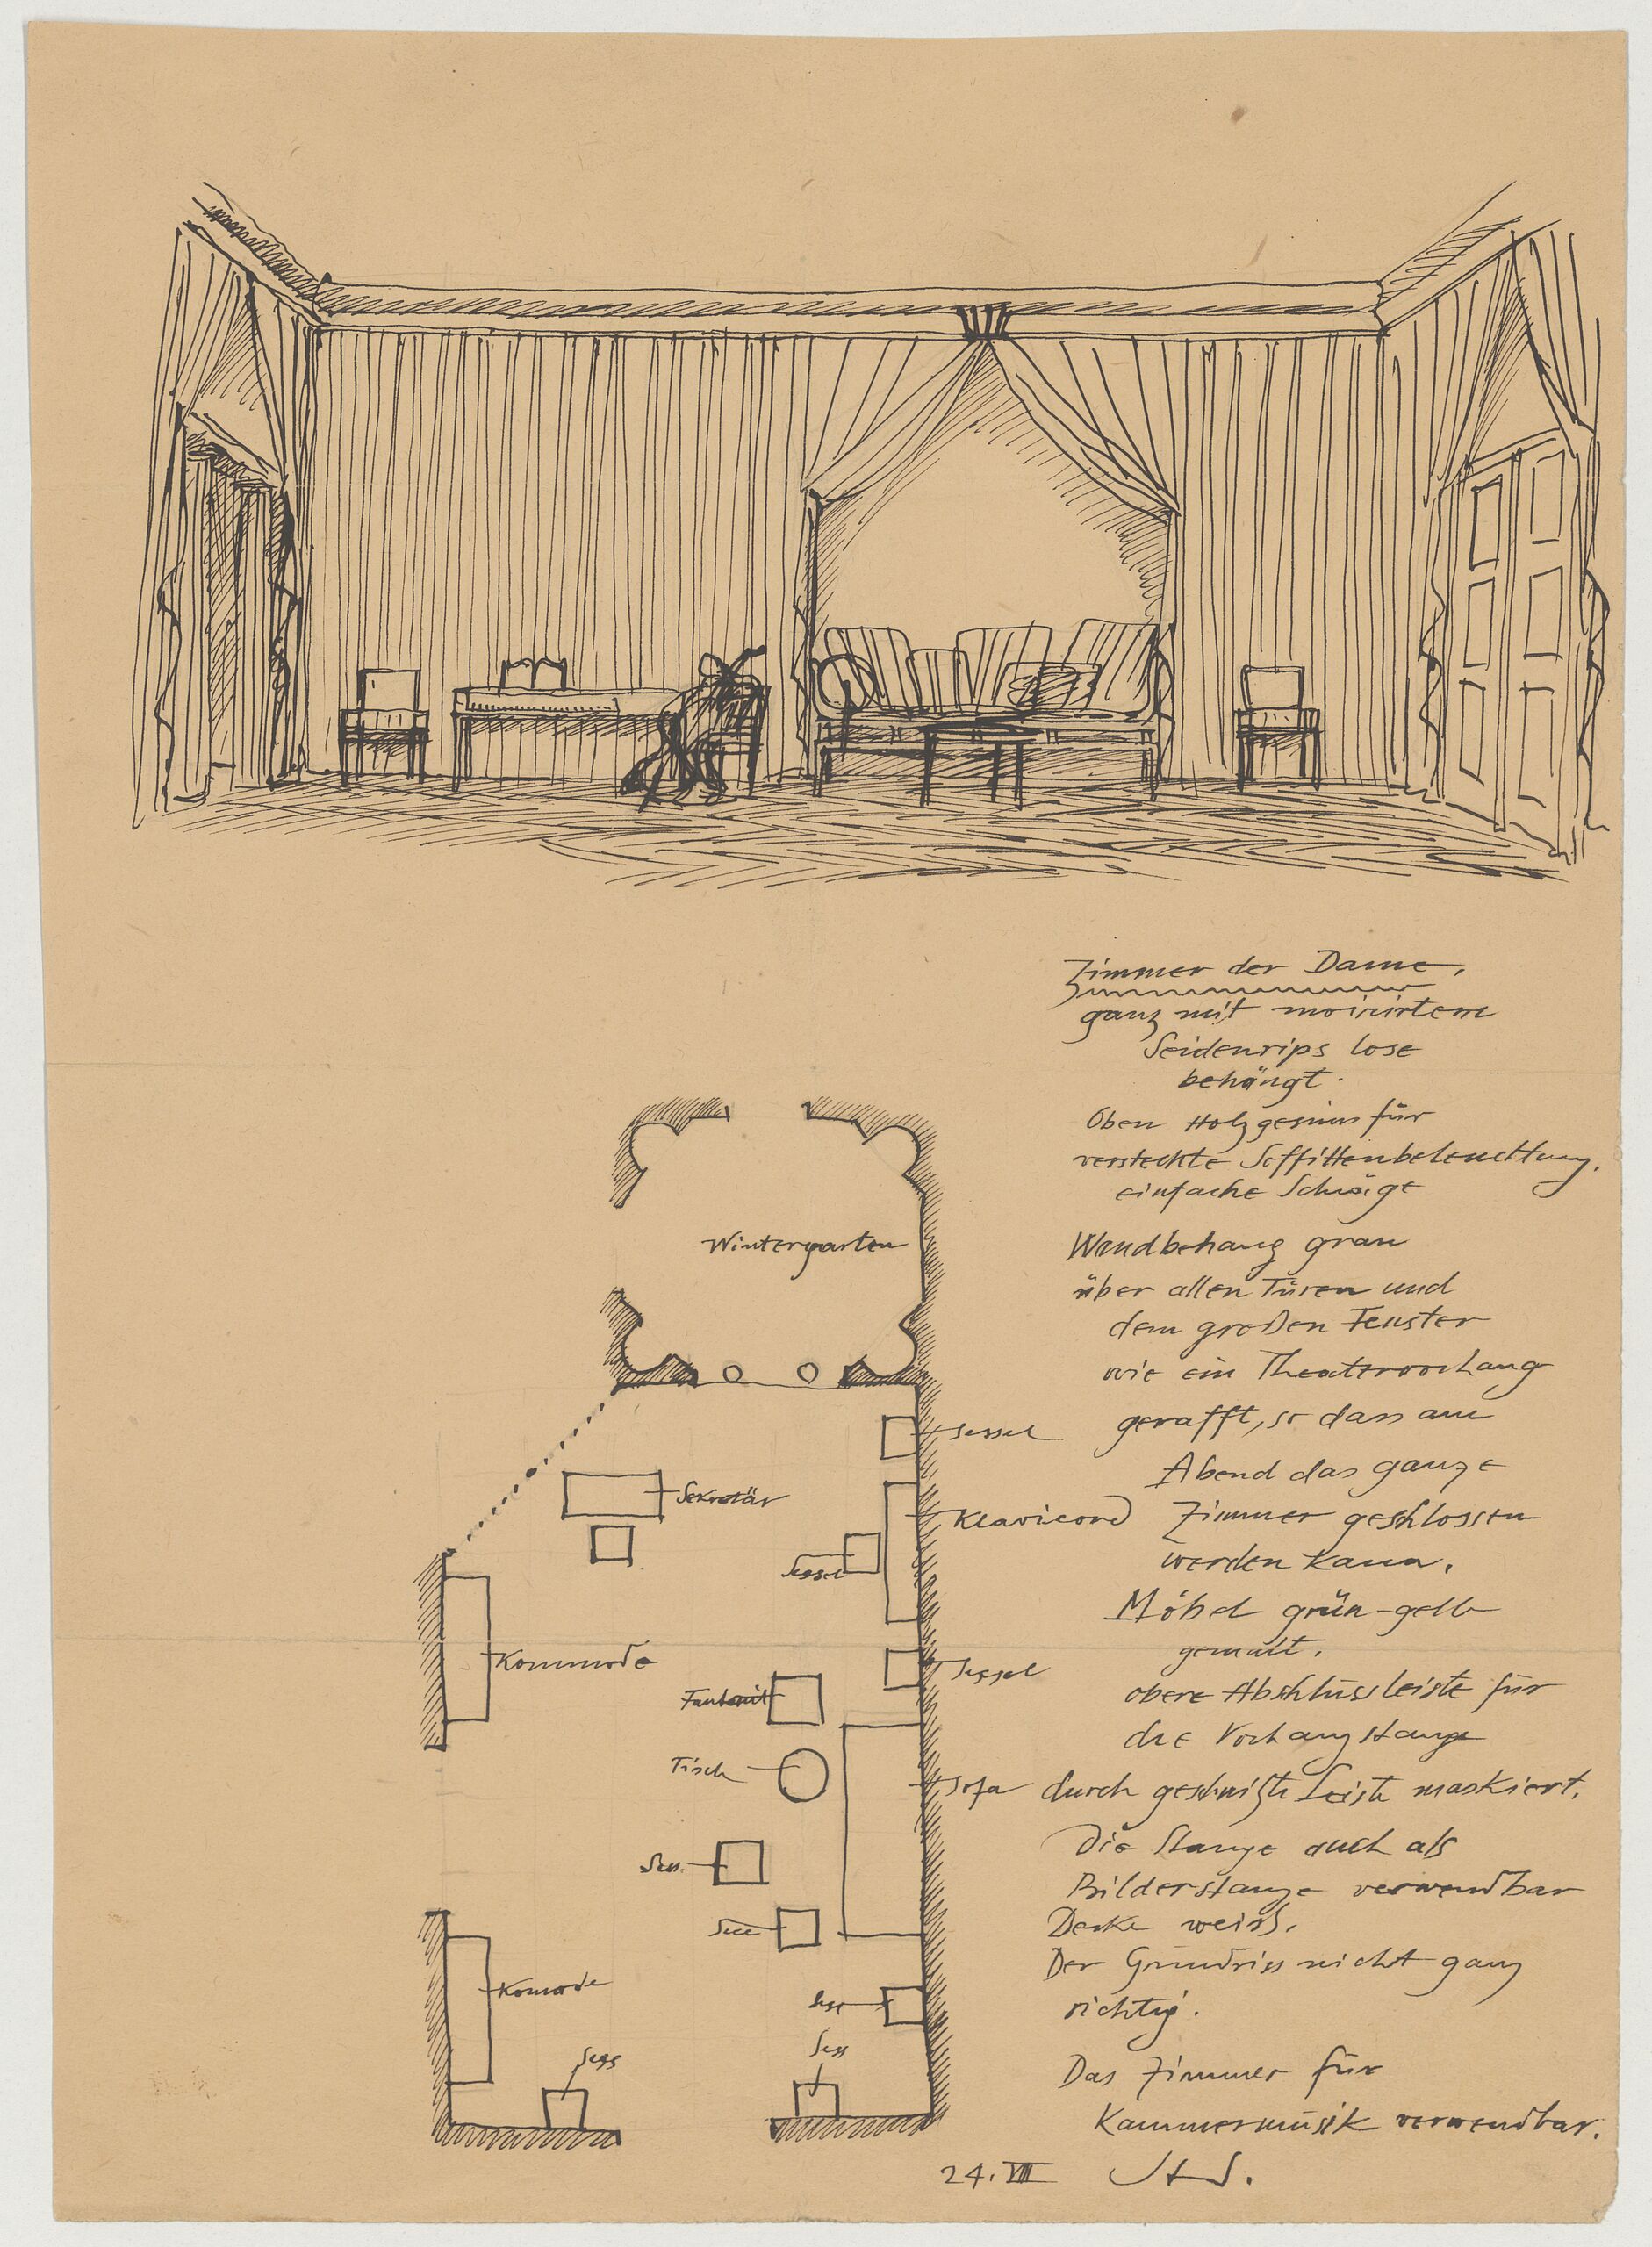 Zimmer der Dame,
ganz mit moirirtem
Seidenrips lose
behängt.
Oben Holzgesims für
versteckte Soffittenbeleuchtung.
einfache Schräge
Wandbehang grau
über allen Türen und
dem großen Fenster
wie ein Theatervorhang
gerafft, so dass am
Abend das ganze
Zimmer geschlossen
werden kann.
Möbel grün-gelb
gemalt.
obere Abschlussleiste für
die Vorhangstange
durch geschnizte Leiste maskiert.
Die Stange auch als
Bilderstange verwendbar
Decke weiss.
Der Grundriss nicht ganz
richtig.
Das Zimmer für
Kammermusik verwendbar.
24. VIII
Wintergarten
Sessel
Sekretär
Klavicord
Sessel
Kommode
Sessel
Fauteuil
Tisch
Sofa
Sess.
Sess
Komode
Sess
Sess
Sess